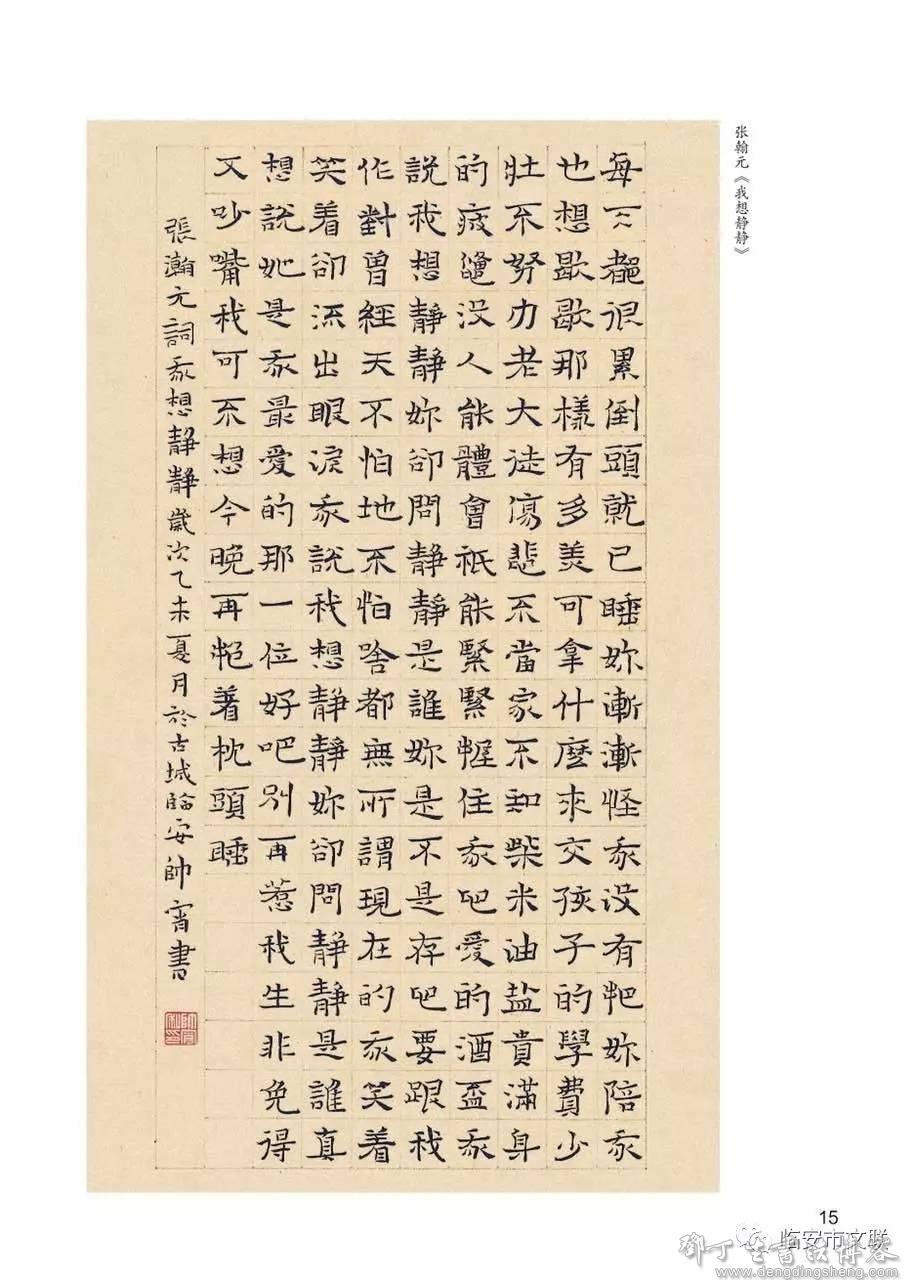 张翰元《我想静静》
每天都很累倒頭就已睡妳漸漸怪我没有把妳陪我
也想歇歇那樣有多美可拿什麼來交孩子的學費少
壯不努力老大徒傷悲不當家不知柴米油盐貴滿身
的疲憊没人能體會祇能緊緊握住我吧愛的酒盃我
説我想靜靜妳卻問靜靜是誰妳是不是存吧要跟我
作對曾經天不怕地不怕啥都無所謂現在的我笑着
笑着卻流出眼淚我說我想靜靜妳卻問靜靜是誰真
想說她是我最愛的那一位好吧别再惹我生非免得
又吵嘴我可不想今晚再抱着枕頭睡
張瀚元詞我想靜靜歲次乙未夏月於古城臨安帥宵書
15
临安市文联
邓丁生书法博客
www.dengdingsheng.com